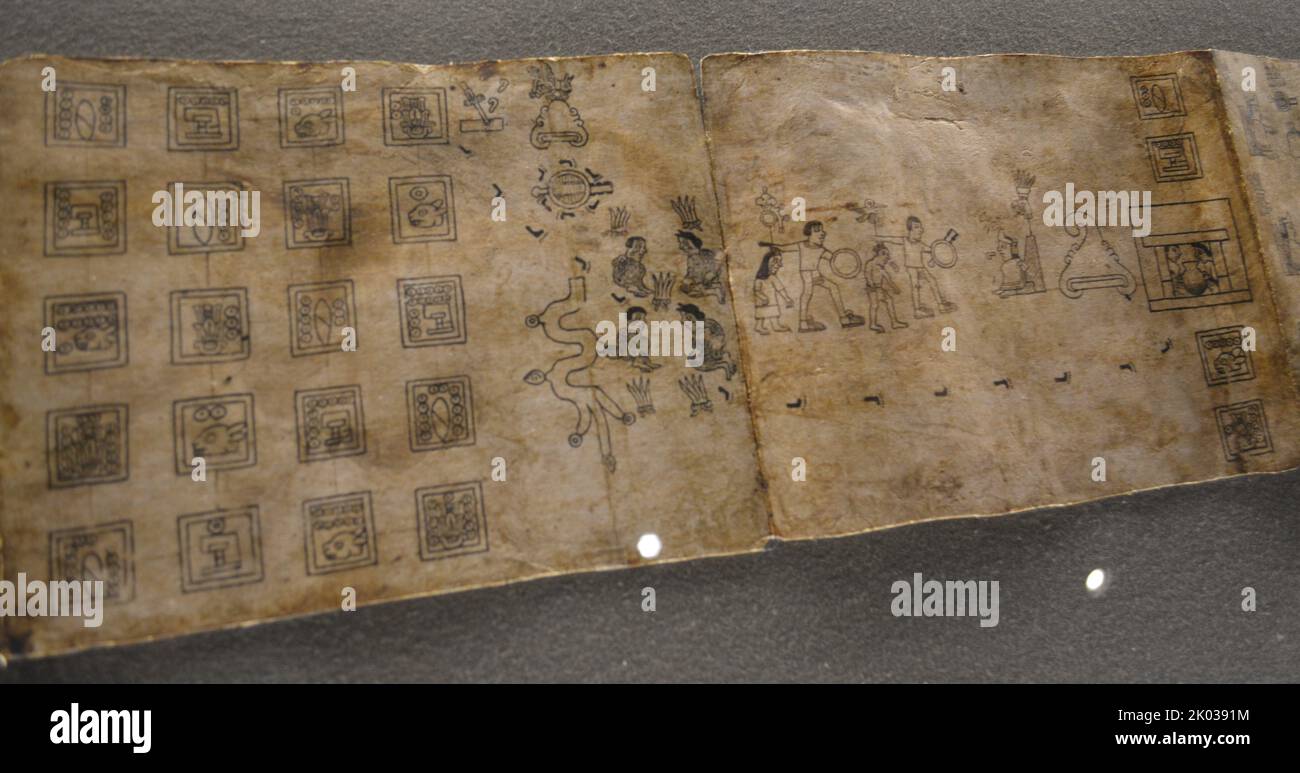 alamy
alamy
alamy
alamy
alamy
a
a
a
a
alamy
Image ID: 2K0391M
www.alamy.com